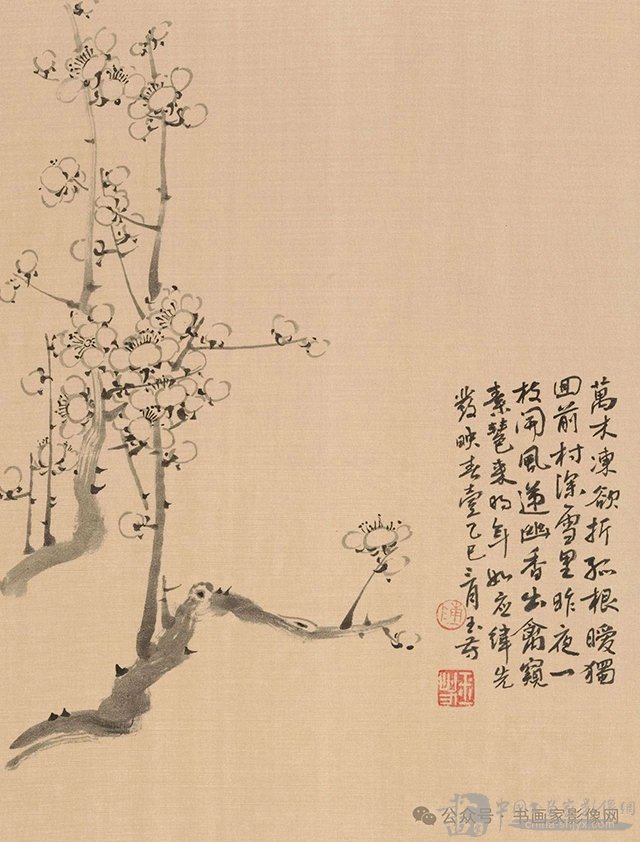 萬木凍欲折孤根暖獨
回前村深雪里昨夜一
枝開風遞幽香出禽窺
素艷來明年如应律先
發映春臺乙巳
公众号 · 书画家影像网